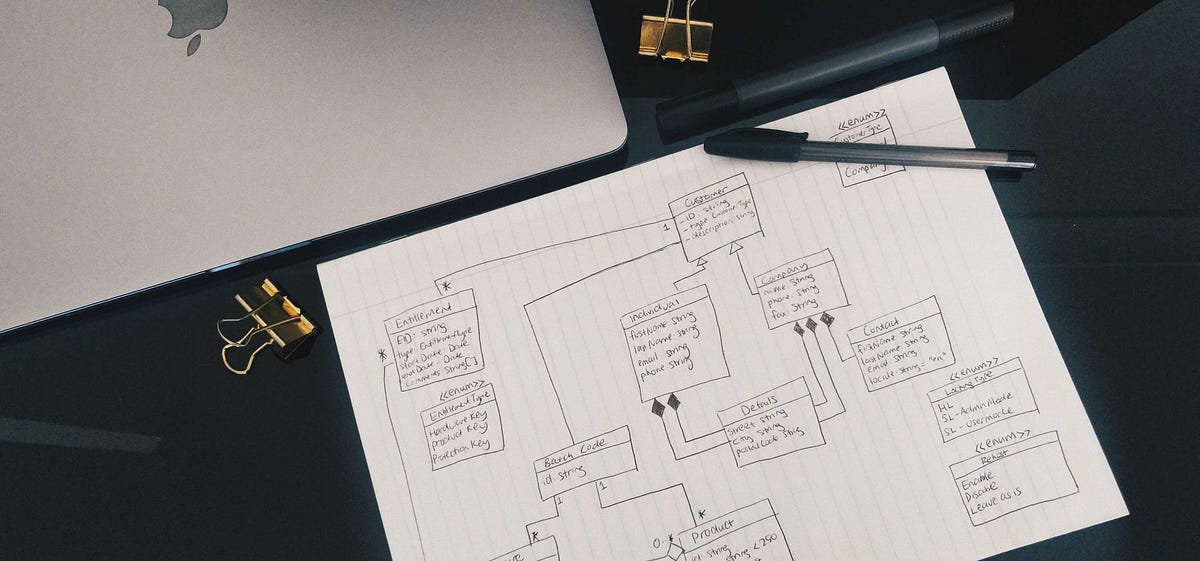 <<enum>>
CustomerType
Company
Customer
- ID: String
- type CustomerType
- description: string
1
*
Entitlement
EID: String
type EntitlementType
start Date: Date
endDate: Date
comments String[]
*
<<enum>>
EntitlementType
Hardware Key
product Key
Protection Key
Individual
firstName: String
lastName: String
email: string
phone: String
Company
name String
phone: string
fax: String
Contact
firstName: string
lastName: String
email: string
locale: string = "en"
Details
street String
City String
<<enum>>
LockingType
HL
SL-AdminMode
SL-Usermode
<<enum>>
Rehost
Enable
Disable
Leave as is
Batch Code
id: String
1
1
*
*
Product
0..*
id: String
string < 250